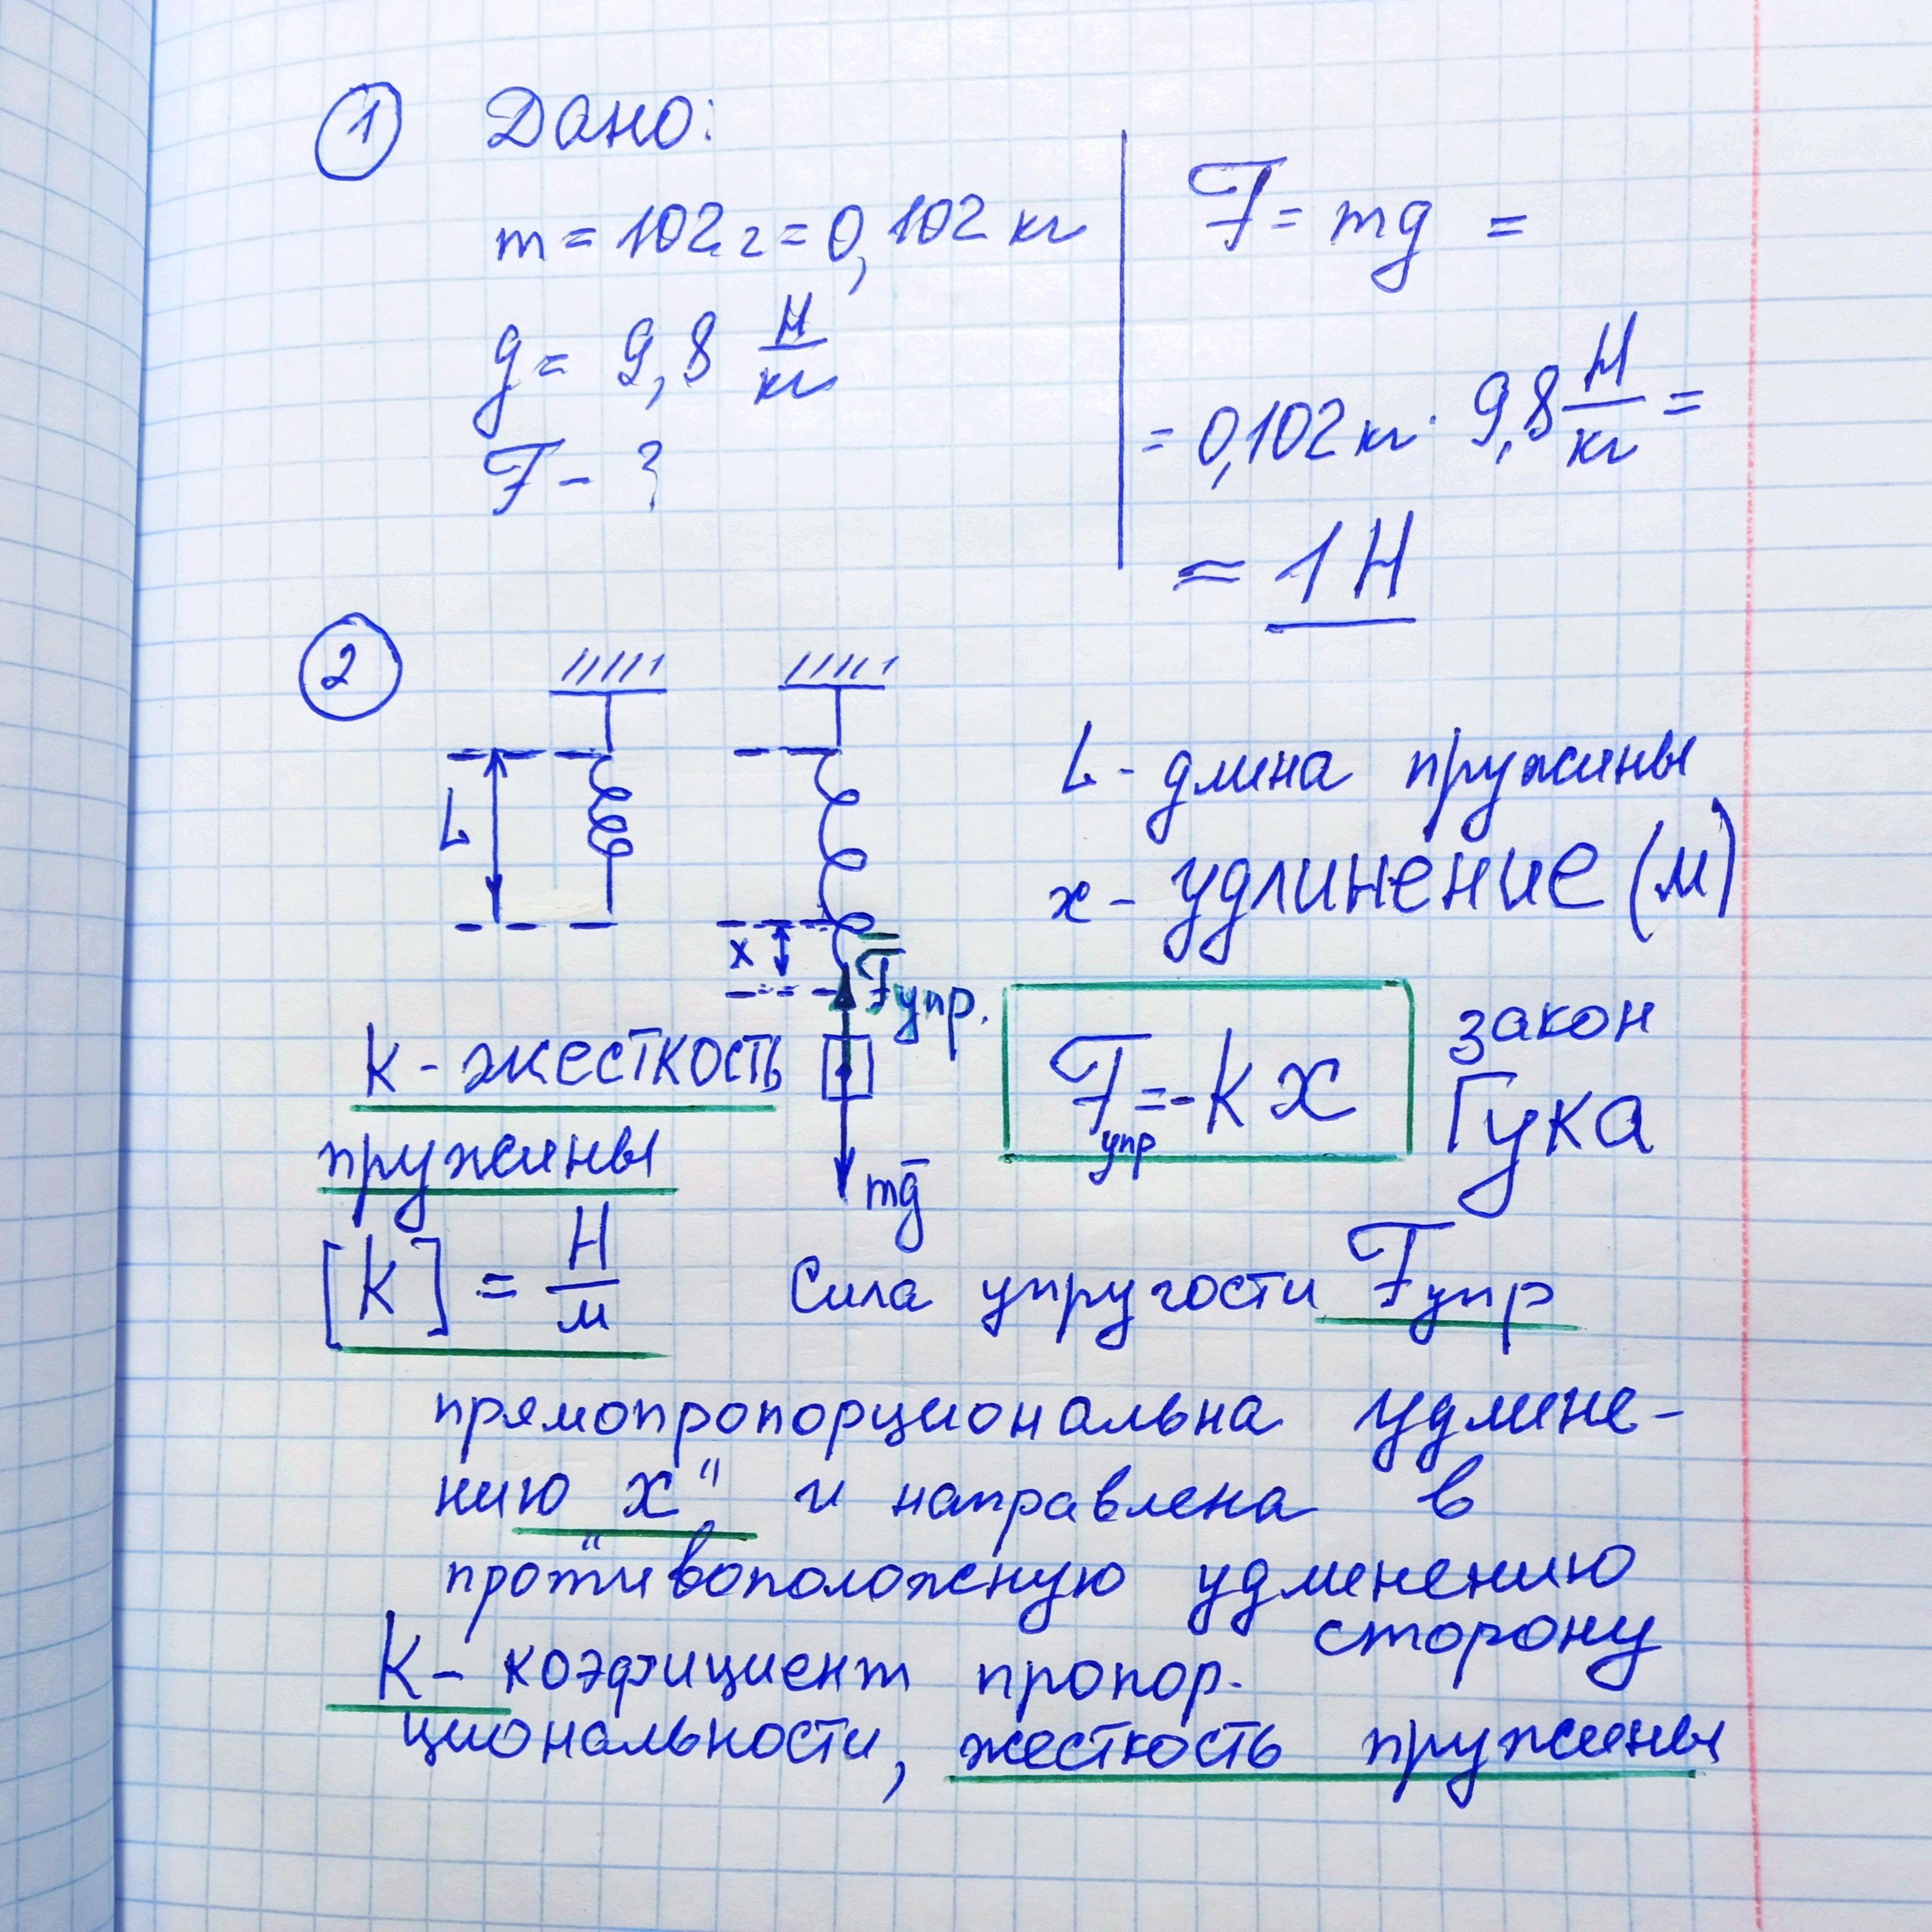 1 Дано:
m = 102 г = 0,102 кг
g = 9,8 Н/кг
F - ?
F = mg =
= 0,102 кг · 9,8 Н/кг =
≈ 1 Н
2
L
x
F̅упр.
mg̅
L - длина пружины
x - удлинение (м)
Fупр = -kx
закон
Гука
k - жесткость
пружины
[k] = Н/м
Сила упругости Fупр
прямопропорциональна удлине-
нию "x" и направлена в
противоположную удлинению
сторону
K - коэфициент пропор-
циональности, жесткость пружины